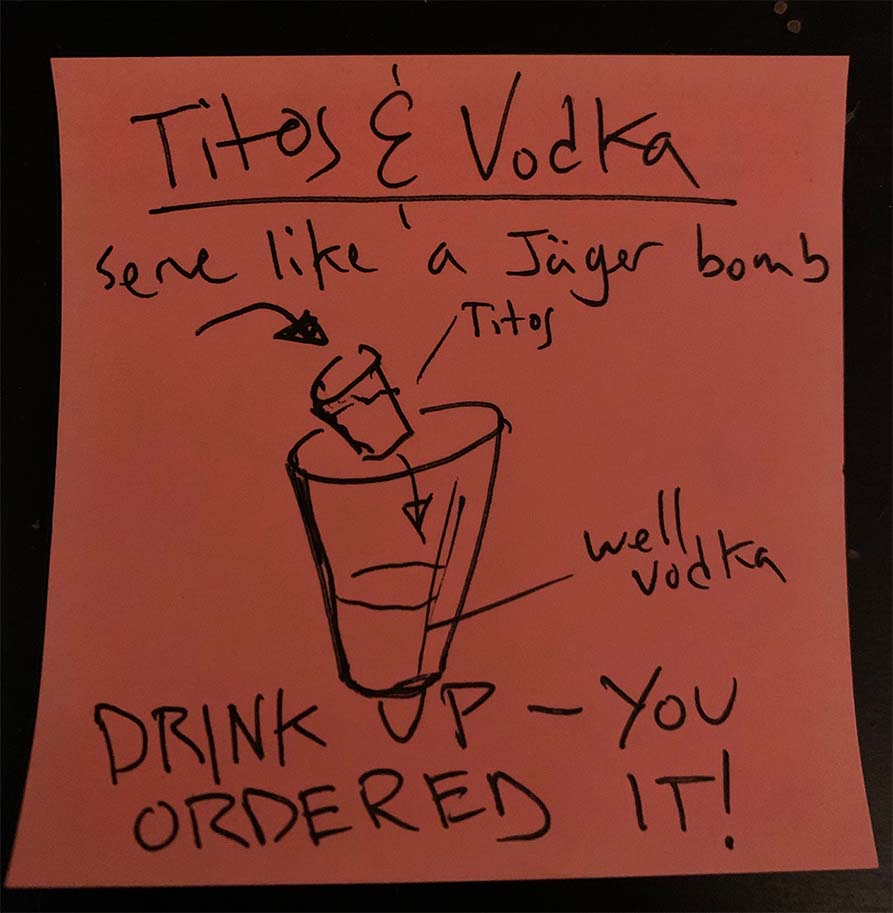 Titos & Vodka
serve like a Jäger bomb
Titos
well
vodka
DRINK UP - YOU
ORDERED IT!